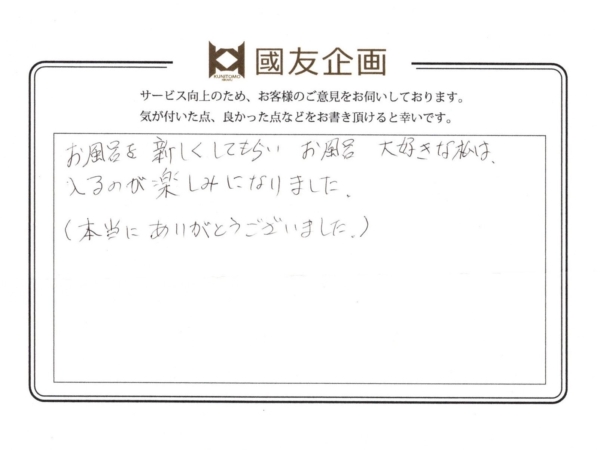 KUNITOMO
國友企画
サービス向上のため、お客様のご意見をお伺いしております。
気が付いた点、良かった点などをお書き頂けると幸いです。
お風呂を 新しくしてもらい お風呂 大好きな私は、
入るのが楽しみになりました。
(本当に ありがとうございました。)